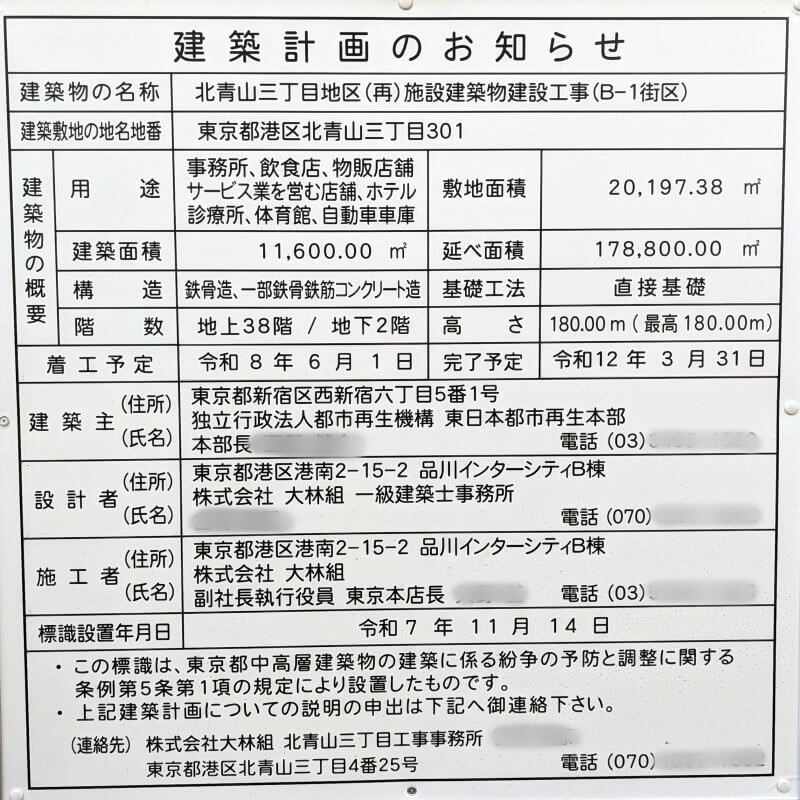 建築計画のお知らせ
建築物の名称 北青山三丁目地区(再)施設建築物建設工事(B-1街区)
建築敷地の地名地番 東京都港区北青山三丁目301
建築物の概要
用途 事務所、飲食店、物販店舗
サービス業を営む店舗、ホテル
診療所、体育館、自動車車庫
敷地面積 20,197.38 ㎡
建築面積 11,600.00 ㎡ 延べ面積 178,800.00 ㎡
構造 鉄骨造、一部鉄骨鉄筋コンクリート造 基礎工法 直接基礎
階数 地上38階 / 地下2階 高さ 180.00m(最高180.00m)
着工予定 令和8年6月1日 完了予定 令和12年3月31日
建築主 (住所) 東京都新宿区西新宿六丁目5番1号
(氏名) 独立行政法人都市再生機構 東日本都市再生本部
本部長 電話 (03)
設計者 (住所) 東京都港区港南2-15-2 品川インターシティB棟
(氏名) 株式会社 大林組 一級建築士事務所
電話 (070)
施工者 (住所) 東京都港区港南2-15-2 品川インターシティB棟
(氏名) 株式会社 大林組
副社長執行役員 東京本店長 電話 (03)
標識設置年月日 令和7年11月14日
・この標識は、東京都中高層建築物の建築に係る紛争の予防と調整に関する
条例第5条第1項の規定により設置したものです。
・上記建築計画についての説明の申出は下記へ御連絡下さい。
(連絡先) 株式会社大林組 北青山三丁目工事事務所
東京都港区北青山三丁目4番25号 電話 (070)